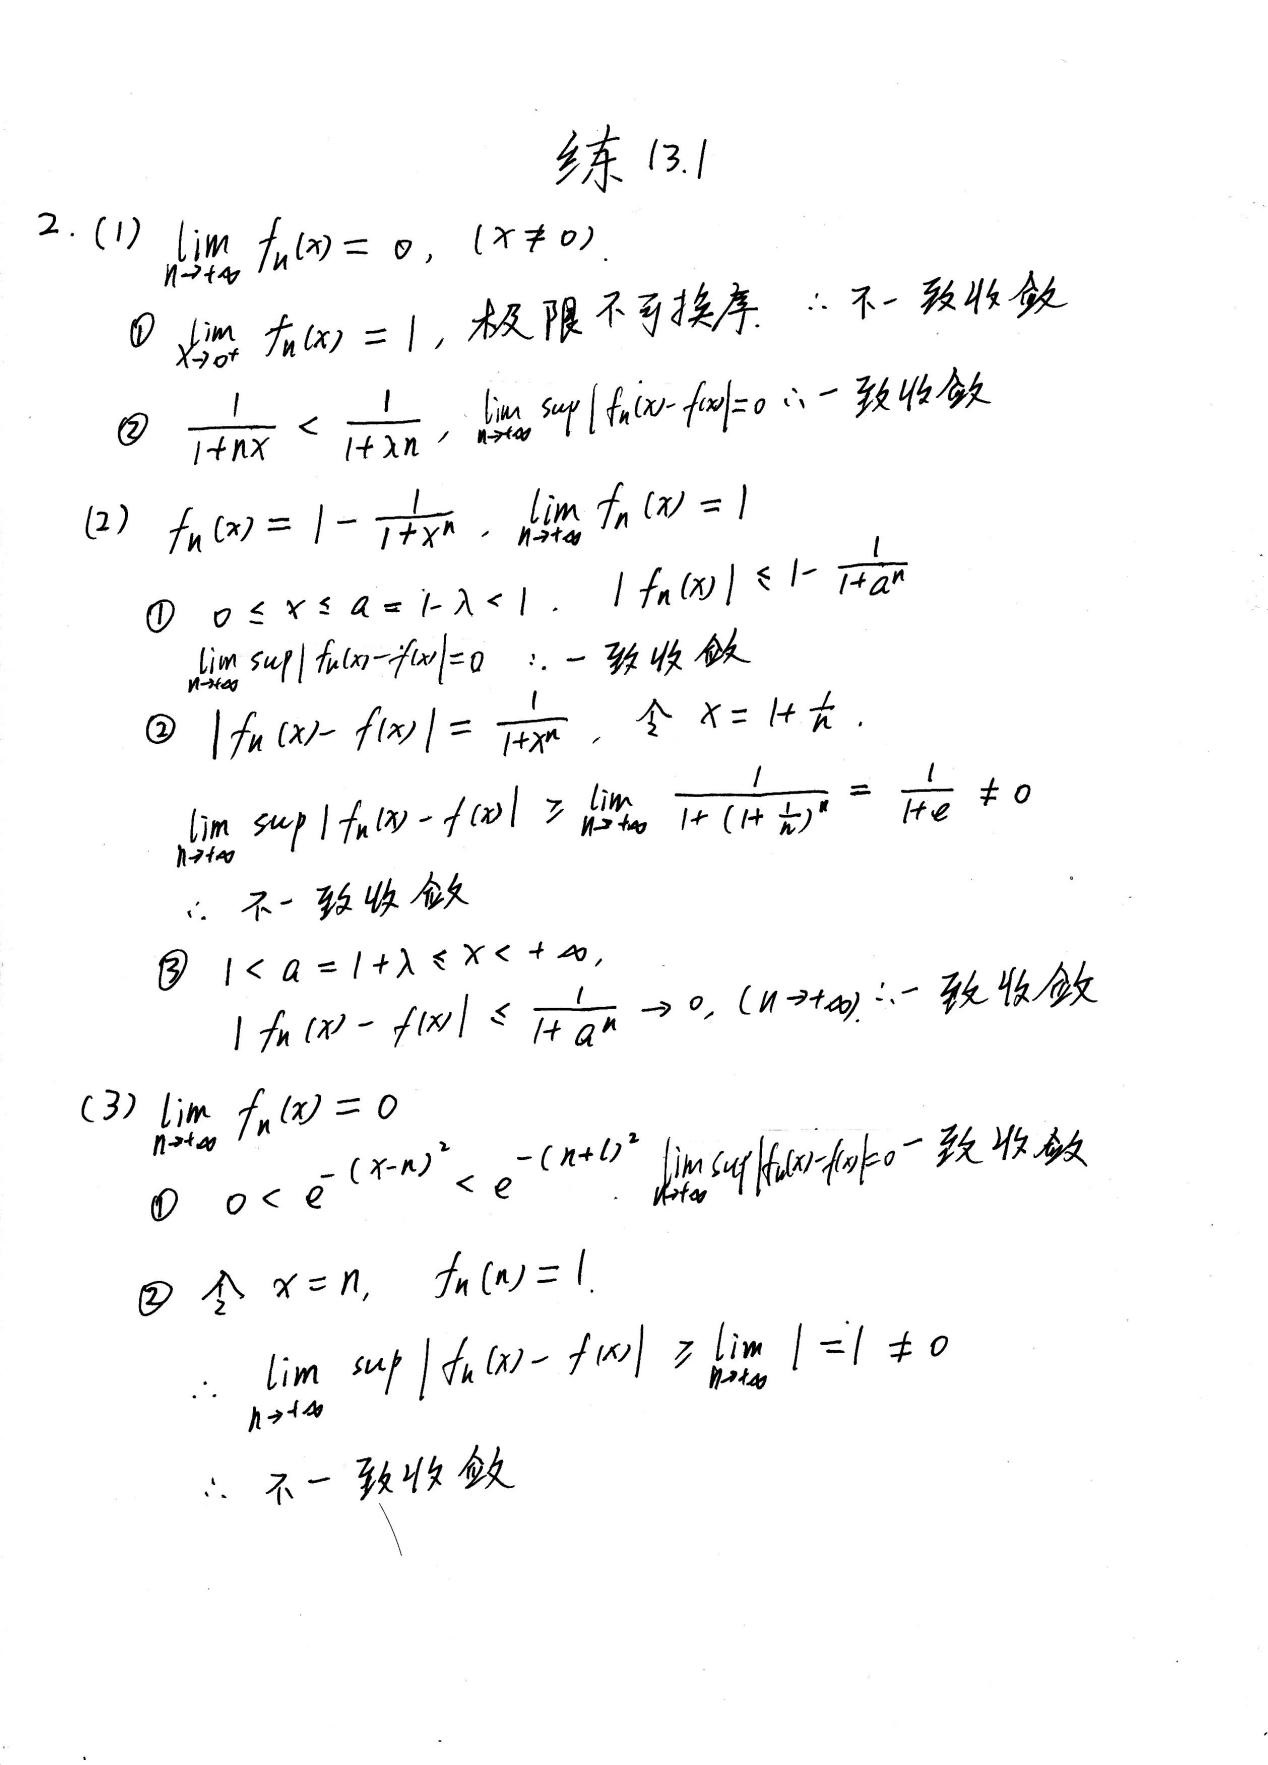 练 13.1
2. (1) lim_{n→+∞} f_n(x) = 0, (x ≠ 0).
① lim_{x→0⁺} f_n(x) = 1, 极限不可换序. ∴ 不一致收敛
② \frac{1}{1+nx} < \frac{1}{1+λn}, lim_{n→+∞} sup|f_n(x)-f(x)|=0 ∴ 一致收敛
(2) f_n(x) = 1 - \frac{1}{1+x^n}. lim_{n→+∞} f_n(x) = 1
① 0 ≤ x ≤ a = 1-λ < 1. |f_n(x)| ≤ 1 - \frac{1}{1+a^n}
lim_{n→+∞} sup|f_n(x)-f(x)|=0 ∴ 一致收敛
② |f_n(x) - f(x)| = \frac{1}{1+x^n}, 令 x = 1+\frac{1}{n}.
lim_{n→+∞} sup|f_n(x) - f(x)| ≥ lim_{n→+∞} \frac{1}{1+(1+\frac{1}{n})^n} = \frac{1}{1+e} ≠ 0
∴ 不一致收敛
③ 1 < a = 1+λ ≤ x < +∞,
|f_n(x) - f(x)| ≤ \frac{1}{1+a^n} → 0, (n→+∞). ∴ 一致收敛
(3) lim_{n→+∞} f_n(x) = 0
① 0 < e^{-(x-n)^2} < e^{-(n+l)^2}. lim_{n→+∞} sup|f_n(x)-f(x)|=0 一致收敛
② 令 x = n, f_n(n) = 1.
∴ lim_{n→+∞} sup|f_n(x) - f(x)| ≥ lim_{n→+∞} 1 = 1 ≠ 0
∴ 不一致收敛